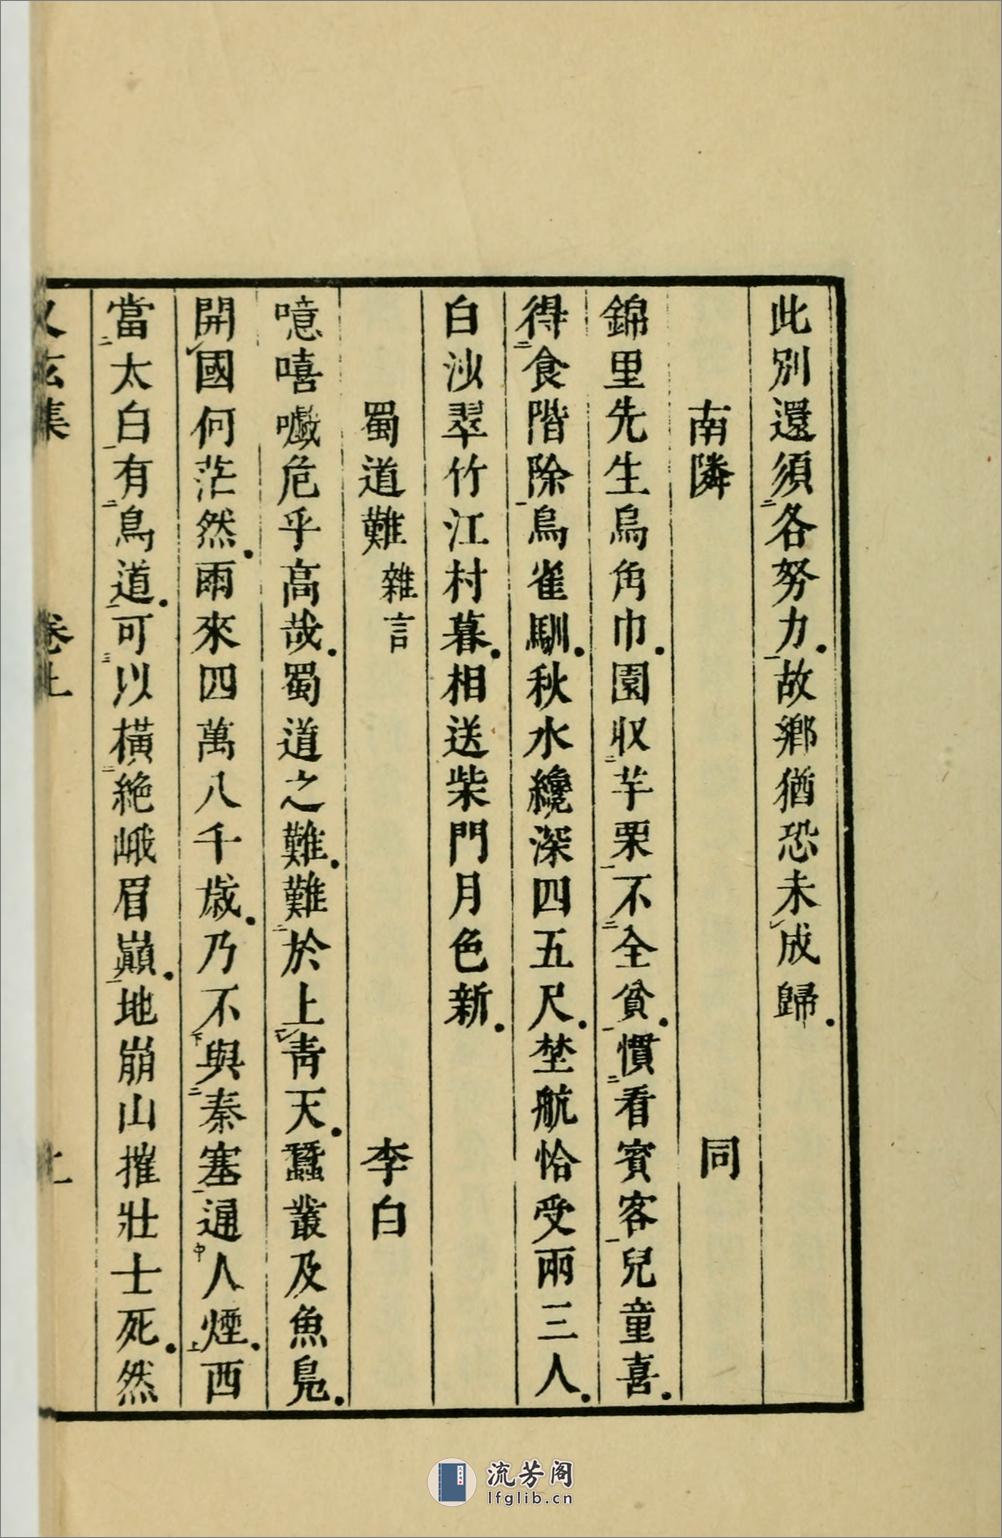 此別還須各努力故鄉猶恐未成歸
南隣 同
錦里先生烏角巾園収芋栗不全貧慣看賓客兒童喜
得食階除鳥雀馴秋水纔深四五尺埜航恰受兩三人
白沙翠竹江村暮相送柴門月色新
蜀道難 雜言 李白
噫嘻嚱危乎高哉蜀道之難難於上青天蠶叢及魚鳧
開國何茫然爾來四萬八千歲乃不與秦塞通人煙西
當太白有鳥道可以橫絶峨眉巔地崩山摧壯士死然
又玄集 卷上 七
流芳阁
lfglib.cn